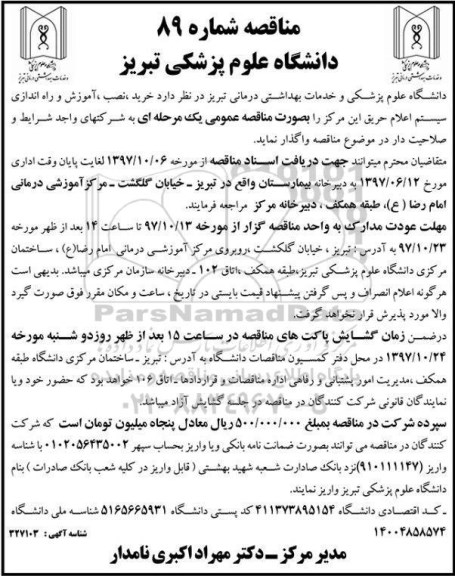 مناقصه شماره ۸۹
دانشگاه علوم پزشکی تبریز
دانشگاه علوم پزشکی و خدمات بهداشتی درمانی تبریز در نظر دارد خرید ،نصب ،آموزش و راه اندازی
سیستم اعلام حریق این مرکز را بصورت مناقصه عمومی یک مرحله ای به شرکتهای واجد شرایط و
صلاحیت دار در موضوع مناقصه واگذار نماید.
متقاضیان محترم میتوانند جهت دریافت اسناد مناقصه از مورخه ۱۳۹۷/۱۰/۰۶ لغایت پایان وقت اداری
مورخ ۱۳۹۷/۰۶/۱۲ به دبیرخانه بیمارستان واقع در تبریز ـ خیابان گلگشت ـ مرکز آموزشی درمانی
امام رضا ( ع)، طبقه همکف ، دبیرخانه مرکز مراجعه فرمایند.
مهلت عودت مدارک به واحد مناقصه گزار از مورخه ۹۷/۱۰/۱۳ تا ساعت ۱۴ بعد از ظهر مورخه
۹۷/۱۰/۲۳ به آدرس : تبریز ، خیابان گلگشت ،روبروی مرکز آموزشی درمانی امام رضا(ع) ، ساختمان
مرکزی دانشگاه علوم پزشکی تبریز،طبقه همکف ،اتاق ۱۰۲ ـ دبیرخانه سازمان مرکزی میباشد. بدیهی است
هرگونه اعلام انصراف و پس گرفتن پیشنهاد قیمت بایستی در تاریخ ، ساعت و مکان مقرر فوق صورت گیرد
والا مورد پذیرش قرار نخواهد گرفت.
درضمن زمان گشایش پاکت های مناقصه در ساعت ۱۵ بعد از ظهر روزدو شنبه مورخه
۱۳۹۷/۱۰/۲۴ در محل دفتر کمسیون مناقصات دانشگاه به آدرس : تبریز ـ ساختمان مرکزی دانشگاه طبقه
همکف ،مدیریت امور پشتیانی و رفاهی اداره مناقصات و قراردادها ـ اتاق ۱۰۶ خواهد بود که حضور خود ویا
نمایندگان قانونی شرکت کنندگان در مناقصه در جلسه گشایش آزاد میباشد.
سپرده شرکت در مناقصه بمبلغ ۵۰۰/۰۰۰/۰۰۰ ریال معادل پنجاه میلیون تومان است که شرکت
کنندگان در مناقصه می توانند بصورت ضمانت نامه بانکی ویا واریز بحساب سپهر ۰۱۰۲۰۵۶۴۳۵۰۰۲ با شناسه
واریز (۹۱۰۱۱۱۱۴۷)نزد بانک صادارت شعبه شهید بهشتی ( قابل واریز در کلیه شعب بانک صادرات ) بنام
دانشگاه علوم پزشکی تبریز واریز نمایند.
ـ کد اقتصادی دانشگاه ۴۱۱۳۷۳۸۹۵۱۵۴ کد پستی دانشگاه ۵۱۶۵۶۶۵۹۳۱ شناسه ملی دانشگاه
۱۴۰۰۴۸۵۸۵۷۴ شناسه آگهی : ۳۲۷۱۰۳
مدیر مرکز ـ دکتر مهراد اکبری نامدار